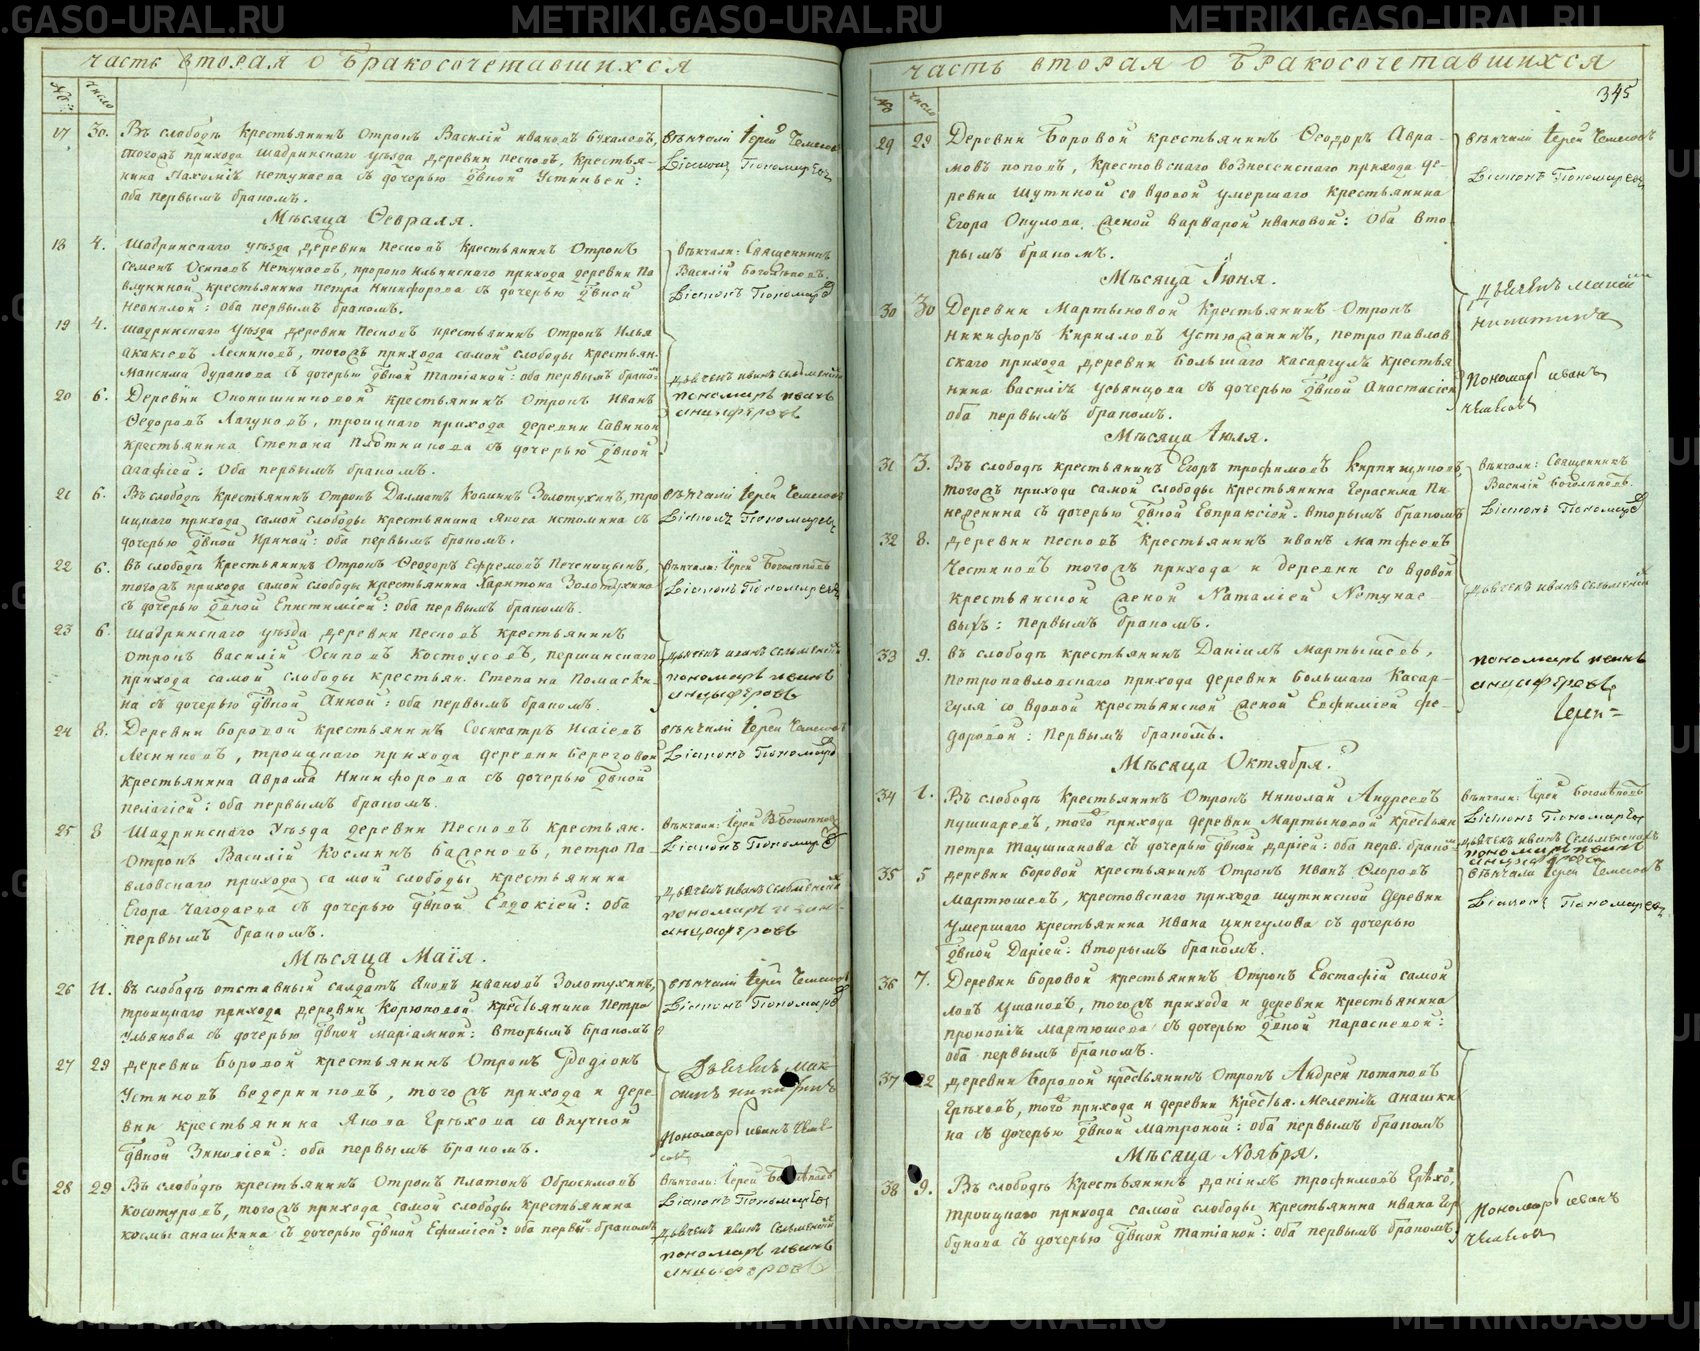 часть вторая о бракосочетавшихся
№
число
17 30. Въ слободѣ крестьянинъ отрокъ Василій Ивановъ
тогожъ прихода Шадринскаго уѣзда деревни Песковъ, крестья-
нина Пахомія Нетунаева съ дочерью дѣвкой Устиньей:
оба первымъ бракомъ.
Вѣнчали Іерей
Діаконъ Пономаревъ
Мѣсяца Февраля.
18 4. Шадринскаго уѣзда деревни Песковъ крестьянинъ отрокъ
Семенъ Осиповъ Нетунаевъ, пророко Ильинскаго прихода деревни Па
влункиной крестьянина Петра Никифорова съ дочерью дѣвкой
Неонилой: оба первымъ бракомъ.
Вѣнчали: Священникъ
Василій Боголѣповъ.
Діаконъ Пономарев
19 4. Шадринскаго уѣзда деревни Песковъ крестьянинъ отрокъ Илья
Акакіевъ Лесниковъ, тогожъ прихода самой слободы крестьян.
Максима Дуракова съ дочерью дѣвкой Татіаной: оба первымъ бракомъ
20 6. Деревни крестьянинъ отрокъ Иванъ
Ѳедоровъ Лагуновъ, троицкаго прихода деревни Савиной
крестьянина Степана Плотникова съ дочерью дѣвкой
Агафіей: оба первымъ бракомъ.
дьячекъ Иванъ Сельменскій
пономарь Иванъ
Анцыферовъ
21 6. Въ слободѣ крестьянинъ отрокъ Далматъ Косминъ Золотухинъ, тро
ицкаго прихода самой слободы крестьянина Якова Истомина съ
дочерью дѣвкой Ириной: оба первымъ бракомъ.
Вѣнчали Іерей
Діаконъ Пономаревъ
22 6. Въ слободѣ крестьянинъ отрокъ Ѳеодоръ Ефремовъ Печеницынъ,
тогожъ прихода самой слободы крестьянина Харитона Золотухина
съ дочерью дѣвкой Епистиміей: оба первымъ бракомъ.
Вѣнчали: Іерей Боголѣповъ
Діаконъ Пономаревъ
23 6. Шадринскаго уѣзда деревни Песковъ крестьянинъ
отрокъ Василій Осиповъ Костоусовъ, першинскаго
прихода самой слободы крестьян. Степана Помаски-
на съ дочерью дѣвкой Анной: оба первымъ бракомъ.
дьячекъ Иванъ Сельменскій
пономарь Иванъ
Анцыферовъ
24 8. Деревни Боровой крестьянинъ Сосипатръ Исаіевъ
Лесниковъ, троицкаго прихода деревни Береговой
крестьянина Аврама Никифорова съ дочерью дѣвкой
Пелагіей: оба первымъ бракомъ.
Вѣнчали Іерей
Діаконъ Пономарев
25 8 Шадринскаго уѣзда деревни Песковъ крестьян.
отрокъ Василій Косминъ Баженовъ, петро Па
вловскаго прихода самой слободы крестьянина
Егора Чагодаева съ дочерью дѣвкой Евдокіей: оба
первымъ бракомъ.
Вѣнчали: Іерей В. Боголѣповъ
Діаконъ Пономарев
дьячекъ Иванъ Сельменскій
пономарь Иван
Анцыферовъ
Мѣсяца Маія.
26 11. Въ слободѣ отставный салдатъ Яковъ Ивановъ Золотухинъ,
троицкаго прихода деревни Корюковой крестьянина Петра
Ульянова съ дочерью дѣвкой Маріамной: вторымъ бракомъ
Вѣнчали Іерей
Діаконъ Пономарев
27 29 Деревни Боровой крестьянинъ отрокъ Родіонъ
Устиновъ Ведерниковъ, тогожъ прихода и дере
вни крестьянина Якова Грѣхова со внучкой
дѣвкой Зиновіей: оба первымъ бракомъ.
Дьячекъ Мак-
симъ Никитинъ
Пономарь Иванъ
28 29 Въ слободѣ крестьянинъ отрокъ Платонъ Обросимовъ
Косотуровъ, тогожъ прихода самой слободы крестьянина
Космы Анашкина съ дочерью дѣвкой Ефиміей: оба первы. бракомъ
Вѣнчали: Іерей Боголѣповъ
Діаконъ Пономаревъ
дьячекъ Иванъ Сельменскій
пономарь Иванъ
Анцыферовъ
часть вторая о бракосочетавшихся
345
№
число
29 29 Деревни Боровой крестьянинъ Ѳеодоръ Авра-
мовъ Поповъ, Крестовскаго вознесенскаго прихода де-
ревни Шутиной со вдовой умершаго крестьянина
Егора Окулова женой Варварой Ивановой: оба вто-
рымъ бракомъ.
Вѣнчали Іерей
Діаконъ Пономаревъ
Мѣсяца Іюня.
30 30 Деревни Мартыновой крестьянинъ отрокъ
Никифоръ Кирилловъ Устюжанинъ, петро павлов
скаго прихода деревни Большаго Касаргулъ крестья
нина Василія Усьянцова съ дочерью дѣвкой Анастасіей
оба первымъ бракомъ.
Дьячекъ Максим
Никитинъ
Пономарь Иванъ
Мѣсяца Іюля.
31 3. Въ слободѣ крестьянинъ Егоръ Трофимовъ Кирпищиковъ
тогожъ прихода самой слободы крестьянина Герасима Пи
неженина съ дочерью дѣвкой Евпраксіей. вторымъ бракомъ
Вѣнчали: Священникъ
Василій Боголѣповъ.
Діаконъ Пономарев
32 8. Деревни Песковъ крестьянинъ Иванъ Матфеевъ
Честиковъ тогожъ прихода и деревни со вдовой
крестьянской женой Наталіей Нетунае
выхъ: первымъ бракомъ.
дьячекъ Иванъ Сельменскій
33 9. Въ слободѣ крестьянинъ Даніилъ Мартышевъ,
Петропавловскаго прихода деревни Большаго Касар-
гуля со вдовой крестьянской женой Евфиміей Ѳе-
доровой: первымъ бракомъ.
пономарь Иванъ
Анцыферовъ
Мѣсяца Октября.
34 1. Въ слободѣ крестьянинъ отрокъ Николай Андреевъ
Пушкаревъ, того прихода деревни Мартыновой крестьян
Петра Таушканова съ дочерью дѣвкой Даріей: оба перв. браком
Вѣнчали: Іерей Боголѣповъ
Діаконъ Пономаревъ
дьячекъ Иванъ Сельменской
пономарь Иванъ
Анцыферовъ
35 5 Деревни Боровой крестьянинъ отрокъ Иванъ Ѳедоровъ
Мартюшевъ, крестовскаго прихода шутинской деревни
умершаго крестьянина Ивана Цингулова съ дочерью
дѣвкой Даріей: вторымъ бракомъ.
Вѣнчали Іерей
Діаконъ Пономаревъ
36 7. Деревни Боровой крестьянинъ отрокъ Евстафій Самой
ловъ Ушаковъ, тогожъ прихода и деревни крестьянина
Прокопія Мартюшева съ дочерью дѣвкой Параскевой:
оба первымъ бракомъ.
37 22 Деревни Боровой крестьянинъ отрокъ Андрей Потаповъ
Грѣховъ, того прихода и деревни крестья. Мелетія Анашки
на съ дочерью дѣвкой Матроной: оба первымъ бракомъ
Мѣсяца Ноября.
38 9. Въ слободѣ крестьянинъ Даніилъ Трофимовъ Грѣхо,
троицкаго прихода самой слободы крестьянина Ивана Гор
бунова съ дочерью дѣвкой Татіаной: оба первымъ бракомъ,
Пономарь Иванъ
METRIKI.GASO-URAL.RU